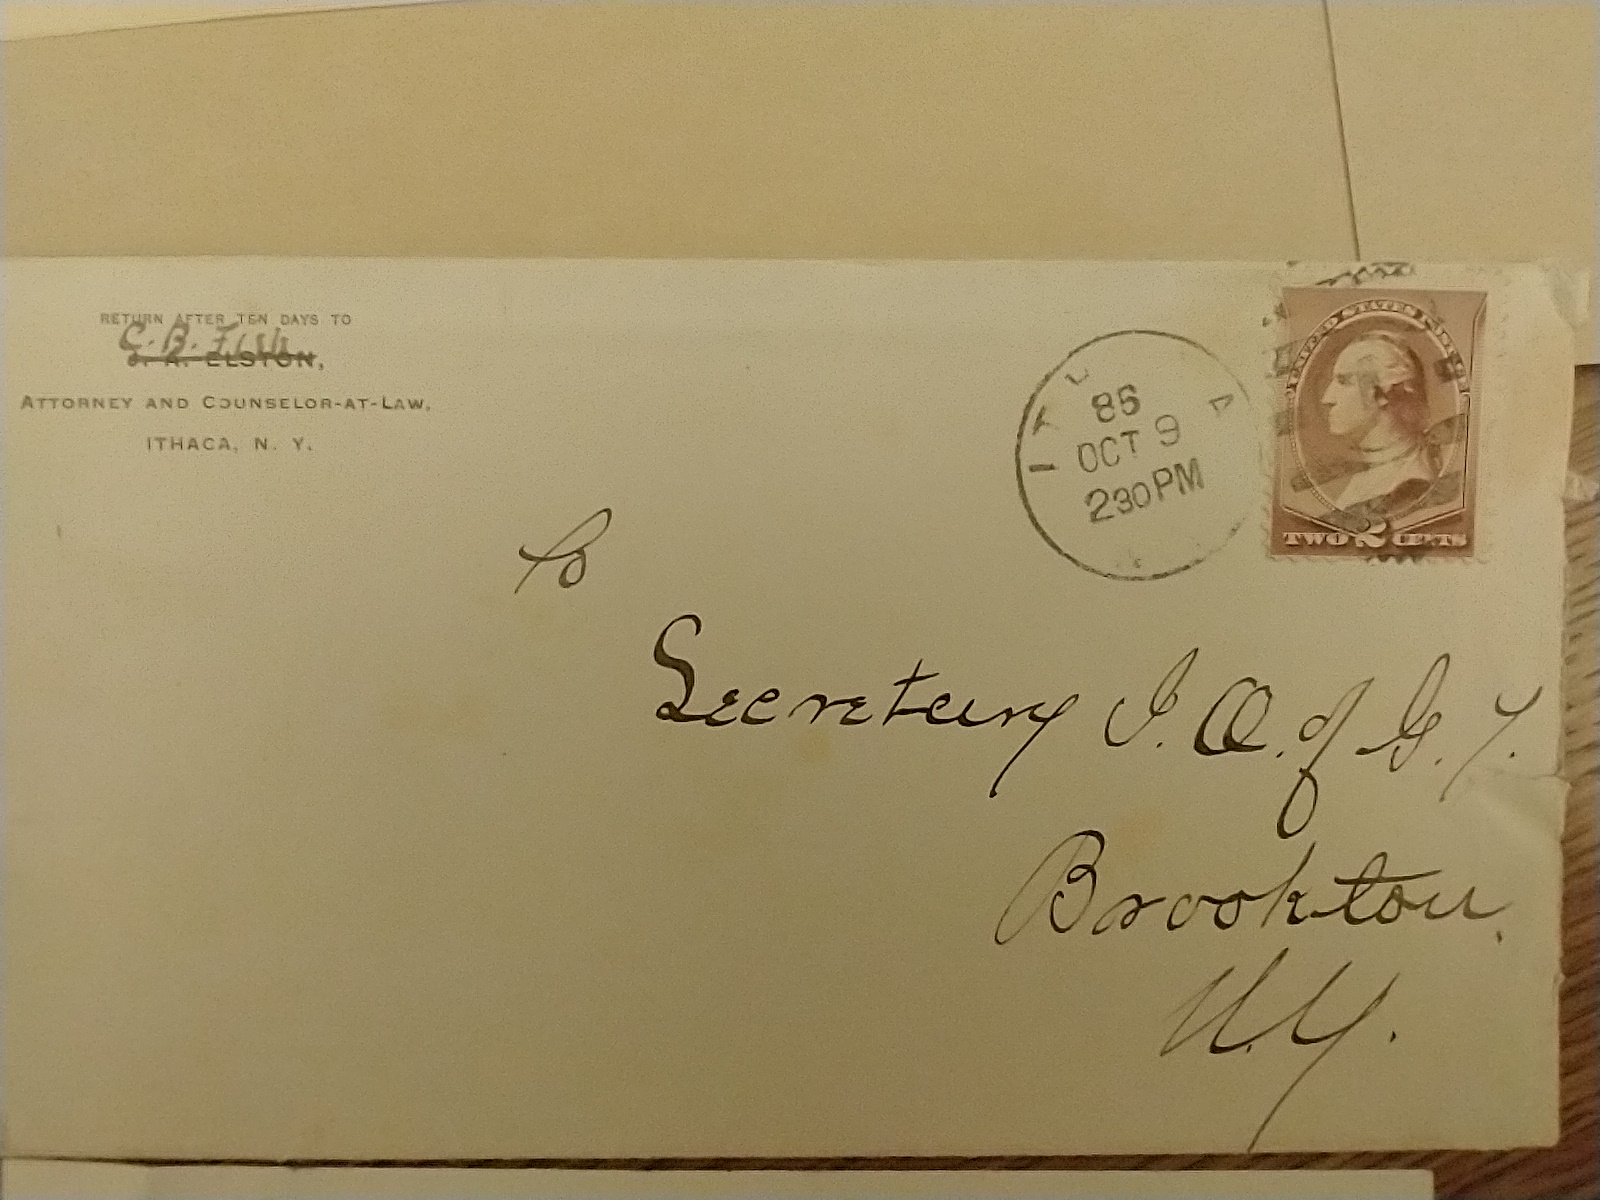 RETURN AFTER TEN DAYS TO
C. B. Fish
J. R. ELSTON,
ATTORNEY AND COUNSELOR-AT-LAW,
ITHACA, N. Y.
86
OCT 9
230PM
UNITED STATES POSTAGE
TWO 2 CENTS
To
Secretary I. O. of G. T.
Brookton,
N. Y.